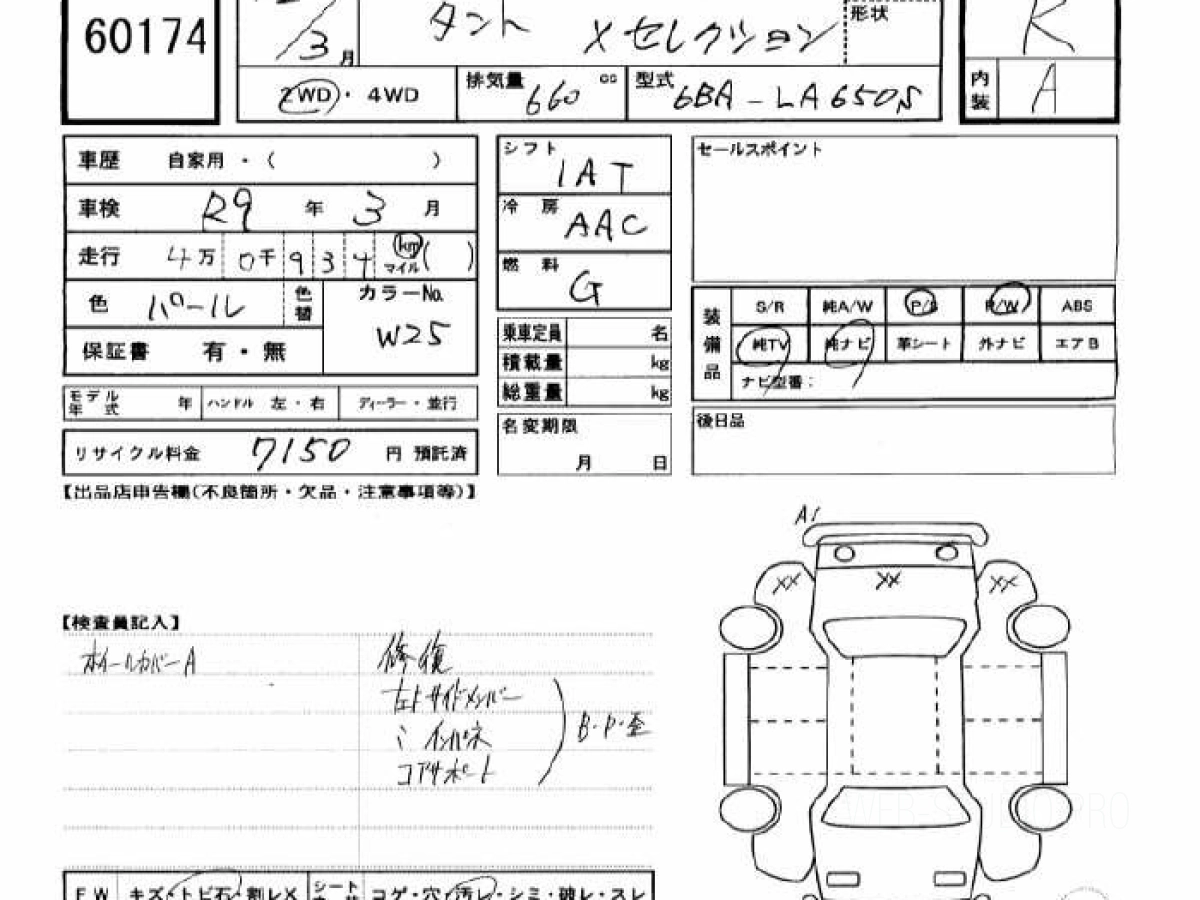 60174
3月
タント Xセレクション
形状
R
2WD・4WD
排気量 660 cc
型式 6BA-LA650S
内装 A
車歴 自家用・( )
車検 R9年 3月
走行 4万 0千 9 3 4 km マイル ( )
色 パール
色替
カラーNo. W25
保証書 有・無
シフト IAT
冷房 AAC
燃料 G
セールスポイント
乗車定員 名
積載量 kg
総重量 kg
装備品
S/R 純A/W P/S P/W ABS
純TV 純ナビ 革シート 外ナビ エアB
ナビ型番:
モデル年式 年 ハンドル 左・右 ディーラー・並行
リサイクル料金 7150 円 預託済
名変期限 月 日
後日品
【出品店申告欄(不良箇所・欠品・注意事項等)】
A1
XX XX XX
【検査員記入】
ホイールカバーA
修復
左トサイドメンバー
〃 インパネ
コアサポート
B・P・歪
FW キズ・トビ石・割レX シート コゲ・穴・汚レ・シミ・破レ・スレ